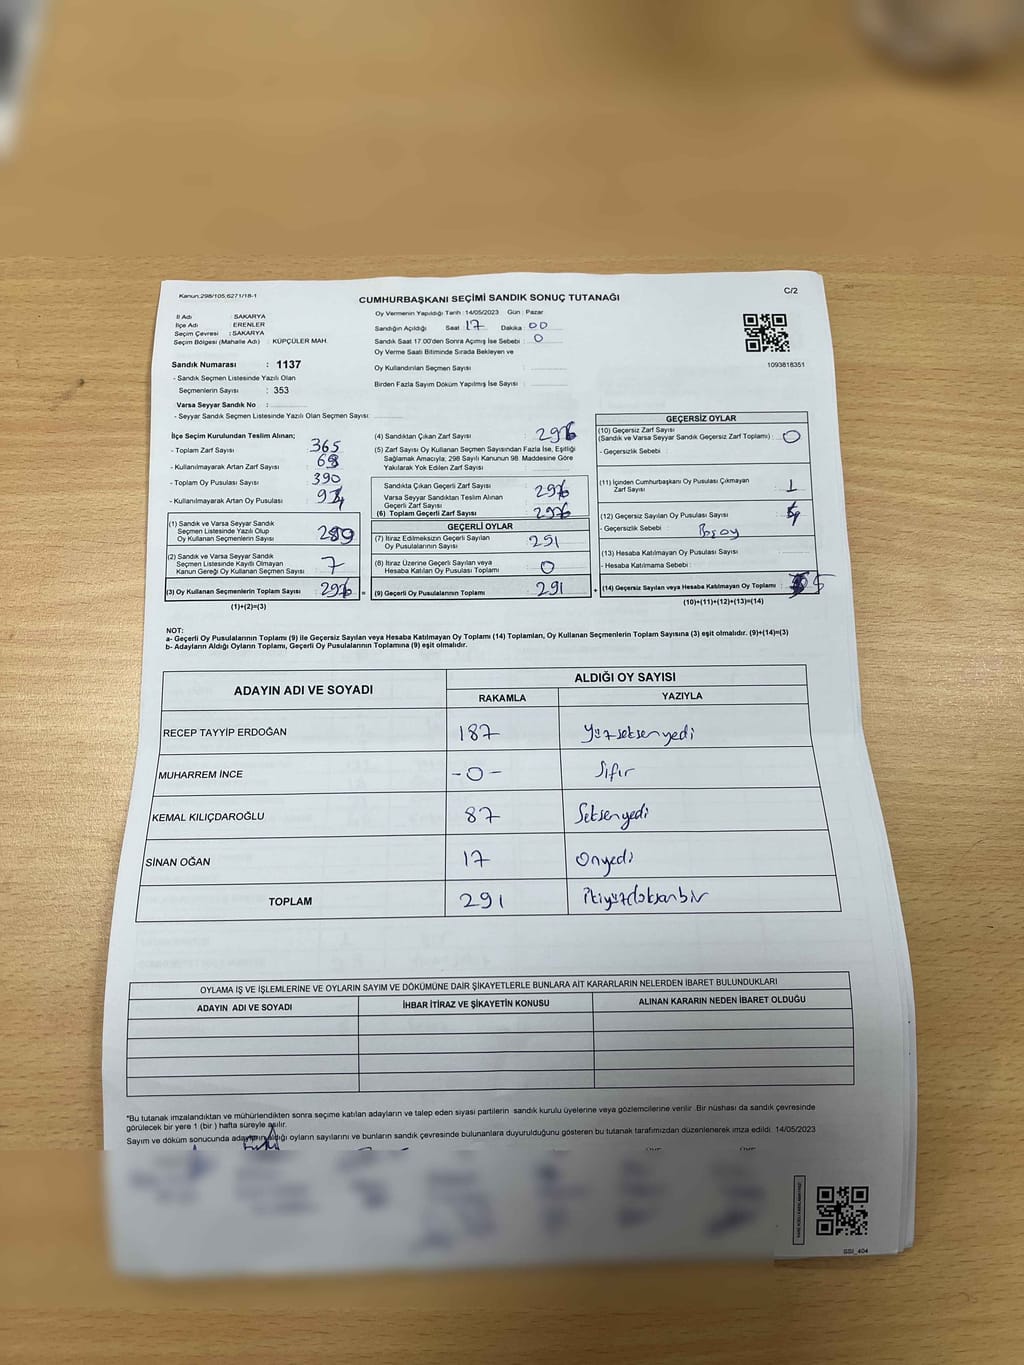 Kanun:298/105;6271/18-1
C/2
CUMHURBAŞKANI SEÇİMİ SANDIK SONUÇ TUTANAĞI
İl Adı : SAKARYA
İlçe Adı : ERENLER
Seçim Çevresi : SAKARYA
Seçim Bölgesi (Mahalle Adı) : KÜPÇÜLER MAH.
Oy Vermenin Yapıldığı Tarih :14/05/2023 Gün : Pazar
Sandığın Açıldığı Saat 17 Dakika 00
Sandık Saat 17.00'den Sonra Açımış İse Sebebi : 0
Oy Verme Saati Bitiminde Sırada Bekleyen ve
Oy Kullandırılan Seçmen Sayısı :
Birden Fazla Sayım Döküm Yapılmış İse Sayısı :
1093818351
Sandık Numarası : 1137
- Sandık Seçmen Listesinde Yazılı Olan
Seçmenlerin Sayısı : 353
Varsa Seyyar Sandık No :
- Seyyar Sandık Seçmen Listesinde Yazılı Olan Seçmen Sayısı
İlçe Seçim Kurulundan Teslim Alınan;
- Toplam Zarf Sayısı : 365
- Kullanılmayarak Artan Zarf Sayısı :
- Toplam Oy Pusulası Sayısı : 390
- Kullanılmayarak Artan Oy Pusulası :
(1) Sandık ve Varsa Seyyar Sandık
Seçmen Listesinde Yazılı Olup
Oy Kullanan Seçmenlerin Sayısı 289
(2) Sandık ve Varsa Seyyar Sandık
Seçmen Listesinde Kayıtlı Olmayan
Kanun Gereği Oy Kullanan Seçmen Sayısı 7
(3) Oy Kullanan Seçmenlerin Toplam Sayısı 296 =
(1)+(2)=(3)
(4) Sandıktan Çıkan Zarf Sayısı : 296
(5) Zarf Sayısı Oy Kullanan Seçmen Sayısından Fazla İse, Eşitliği
Sağlamak Amacıyla; 298 Sayılı Kanunun 98. Maddesine Göre
Yakılarak Yok Edilen Zarf Sayısı
Sandıkta Çıkan Geçerli Zarf Sayısı : 296
Varsa Seyyar Sandıktan Teslim Alınan
Geçerli Zarf Sayısı
(6) Toplam Geçerli Zarf Sayısı : 296
GEÇERLİ OYLAR
(7) İtiraz Edilmeksizin Geçerli Sayılan
Oy Pusulalarının Sayısı : 291
(8) İtiraz Üzerine Geçerli Sayılan veya
Hesaba Katılan Oy Pusulası Toplamı : 0
(9) Geçerli Oy Pusulalarının Toplamı : 291 +
GEÇERSİZ OYLAR
(10) Geçersiz Zarf Sayısı
(Sandık ve Varsa Seyyar Sandık Geçersiz Zarf Toplamı) : 0
- Geçersizlik Sebebi :
(11) İçinden Cumhurbaşkanı Oy Pusulası Çıkmayan
Zarf Sayısı : 1
(12) Geçersiz Sayılan Oy Pusulası Sayısı : 4
- Geçersizlik Sebebi :
(13) Hesaba Katılmayan Oy Pusulası Sayısı :
- Hesaba Katılmama Sebebi :
(14) Geçersiz Sayılan veya Hesaba Katılmayan Oy Toplamı : 5
(10)+(11)+(12)+(13)=(14)
NOT:
a- Geçerli Oy Pusulalarının Toplamı (9) ile Geçersiz Sayılan veya Hesaba Katılmayan Oy Toplamı (14) Toplamları, Oy Kullanan Seçmenlerin Toplam Sayısına (3) eşit olmalıdır. (9)+(14)=(3)
b- Adayların Aldığı Oyların Toplamı, Geçerli Oy Pusulalarının Toplamına (9) eşit olmalıdır.
ADAYIN ADI VE SOYADI ALDIĞI OY SAYISI
RAKAMLA YAZIYLA
RECEP TAYYİP ERDOĞAN 187 Yüzseksenyedi
MUHARREM İNCE -0- Sıfır
KEMAL KILIÇDAROĞLU 87 Seksenyedi
SİNAN OĞAN 17 Onyedi
TOPLAM 291 İkiyüzdoksanbir
OYLAMA İŞ VE İŞLEMLERİNE VE OYLARIN SAYIM VE DÖKÜMÜNE DAİR ŞİKAYETLERLE BUNLARA AİT KARARLARIN NELERDEN İBARET BULUNDUKLARI
ADAYIN ADI VE SOYADI İHBAR İTİRAZ VE ŞİKAYETİN KONUSU ALINAN KARARIN NEDEN İBARET OLDUĞU
*Bu tutanak imzalandıktan ve mühürlendikten sonra seçime katılan adayların ve talep eden siyasi partilerin sandık kurulu üyelerine veya gözlemcilerine verilir. Bir nüshası da sandık çevresinde
görülecek bir yere 1 (bir ) hafta süreyle asılır.
Sayım ve döküm sonucunda adayların aldığı oyların sayılarını ve bunların sandık çevresinde bulunanlara duyurulduğunu gösteren bu tutanak tarafımızdan düzenlenerek imza edildi. 14/05/2023
SSI_404